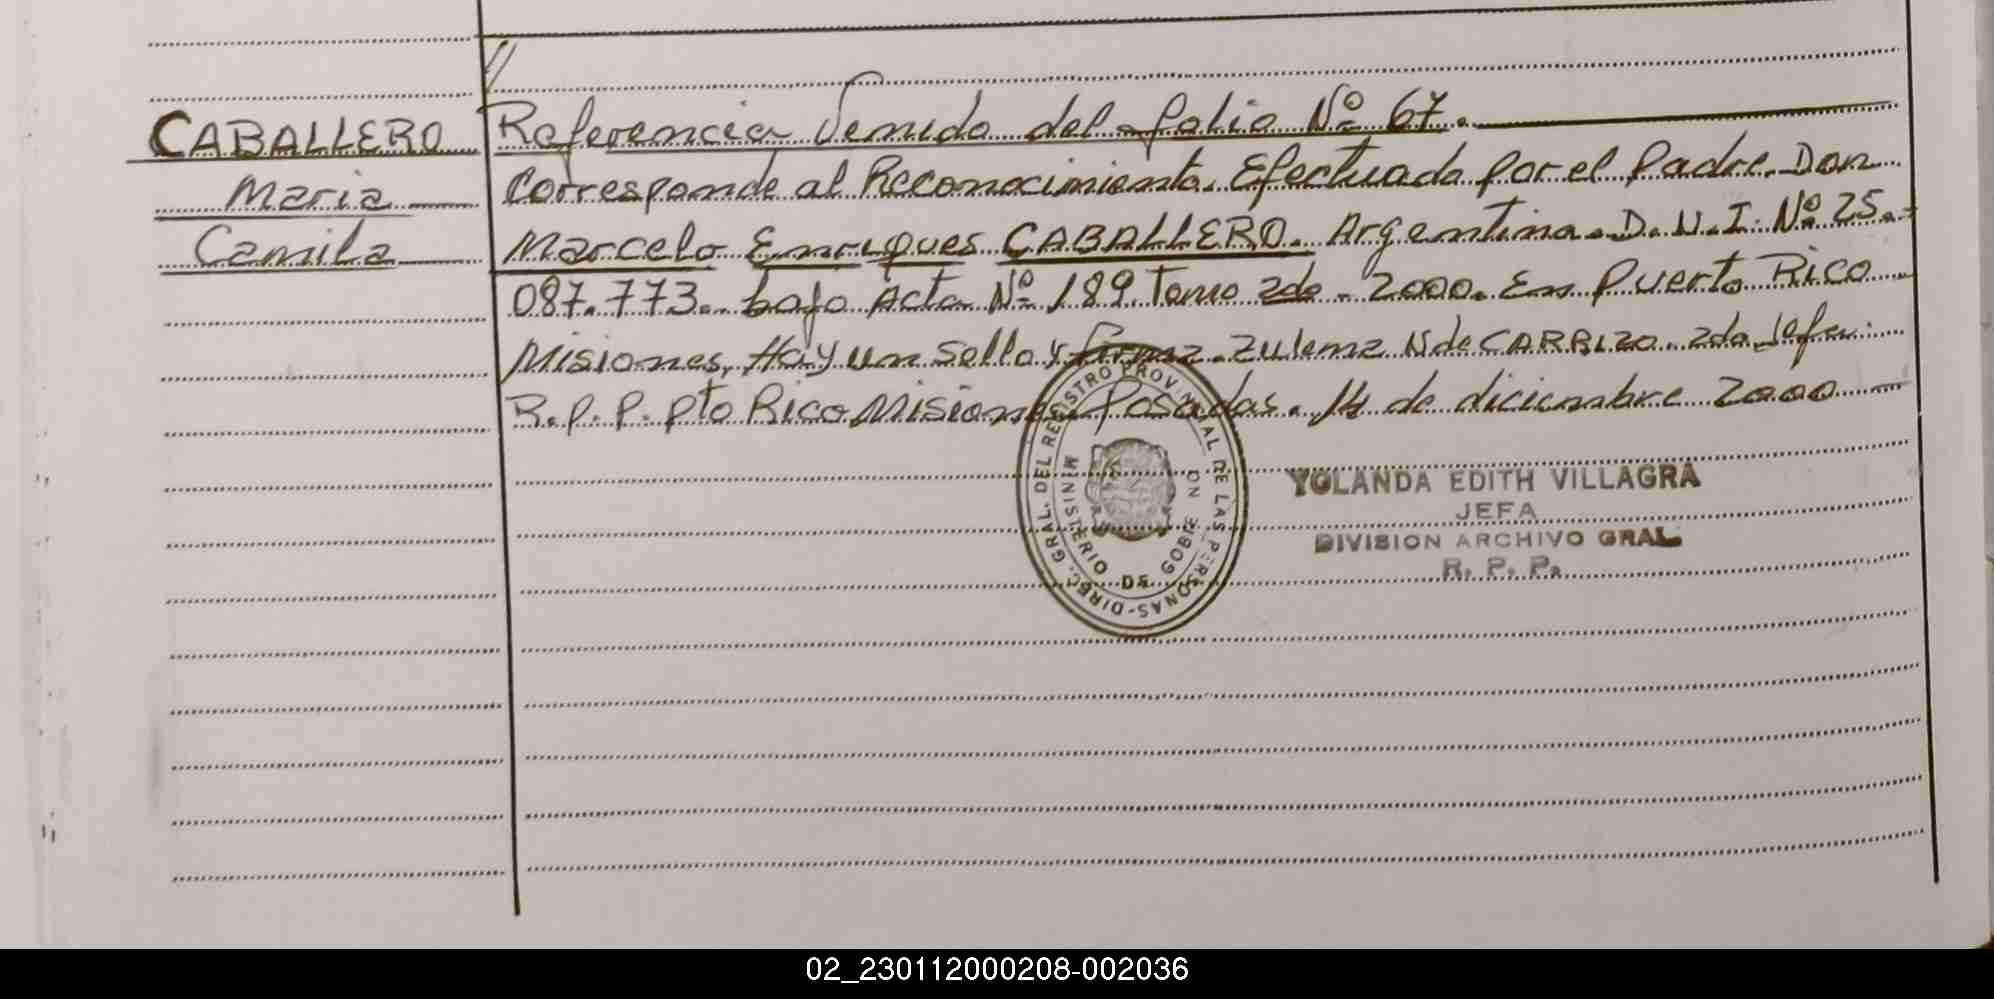 CABALLERO
Maria
Camila
Referencia Venido del folio Nº 67.
Corresponde al Reconocimiento. Efectuado por el Padre. Don
Marcelo Enriques CABALLERO. Argentino. D.N.I. Nº 25.-
087.773.. bajo Acta Nº 189. Tomo 2do. 2000. En Puerto Rico
Misiones, Hay un Sello y firma. Zulema N de CARRIZO. 2da Jefa.
R.P.P. Pto Rico Misiones. Posadas. 14 de diciembre 2000
DIREC. GRAL. DEL REGISTRO PROVINCIAL DE LAS PERSONAS-
MINISTERIO DE GOBIERNO
YOLANDA EDITH VILLAGRA
JEFA
DIVISION ARCHIVO GRAL
R. P. P.
02_230112000208-002036